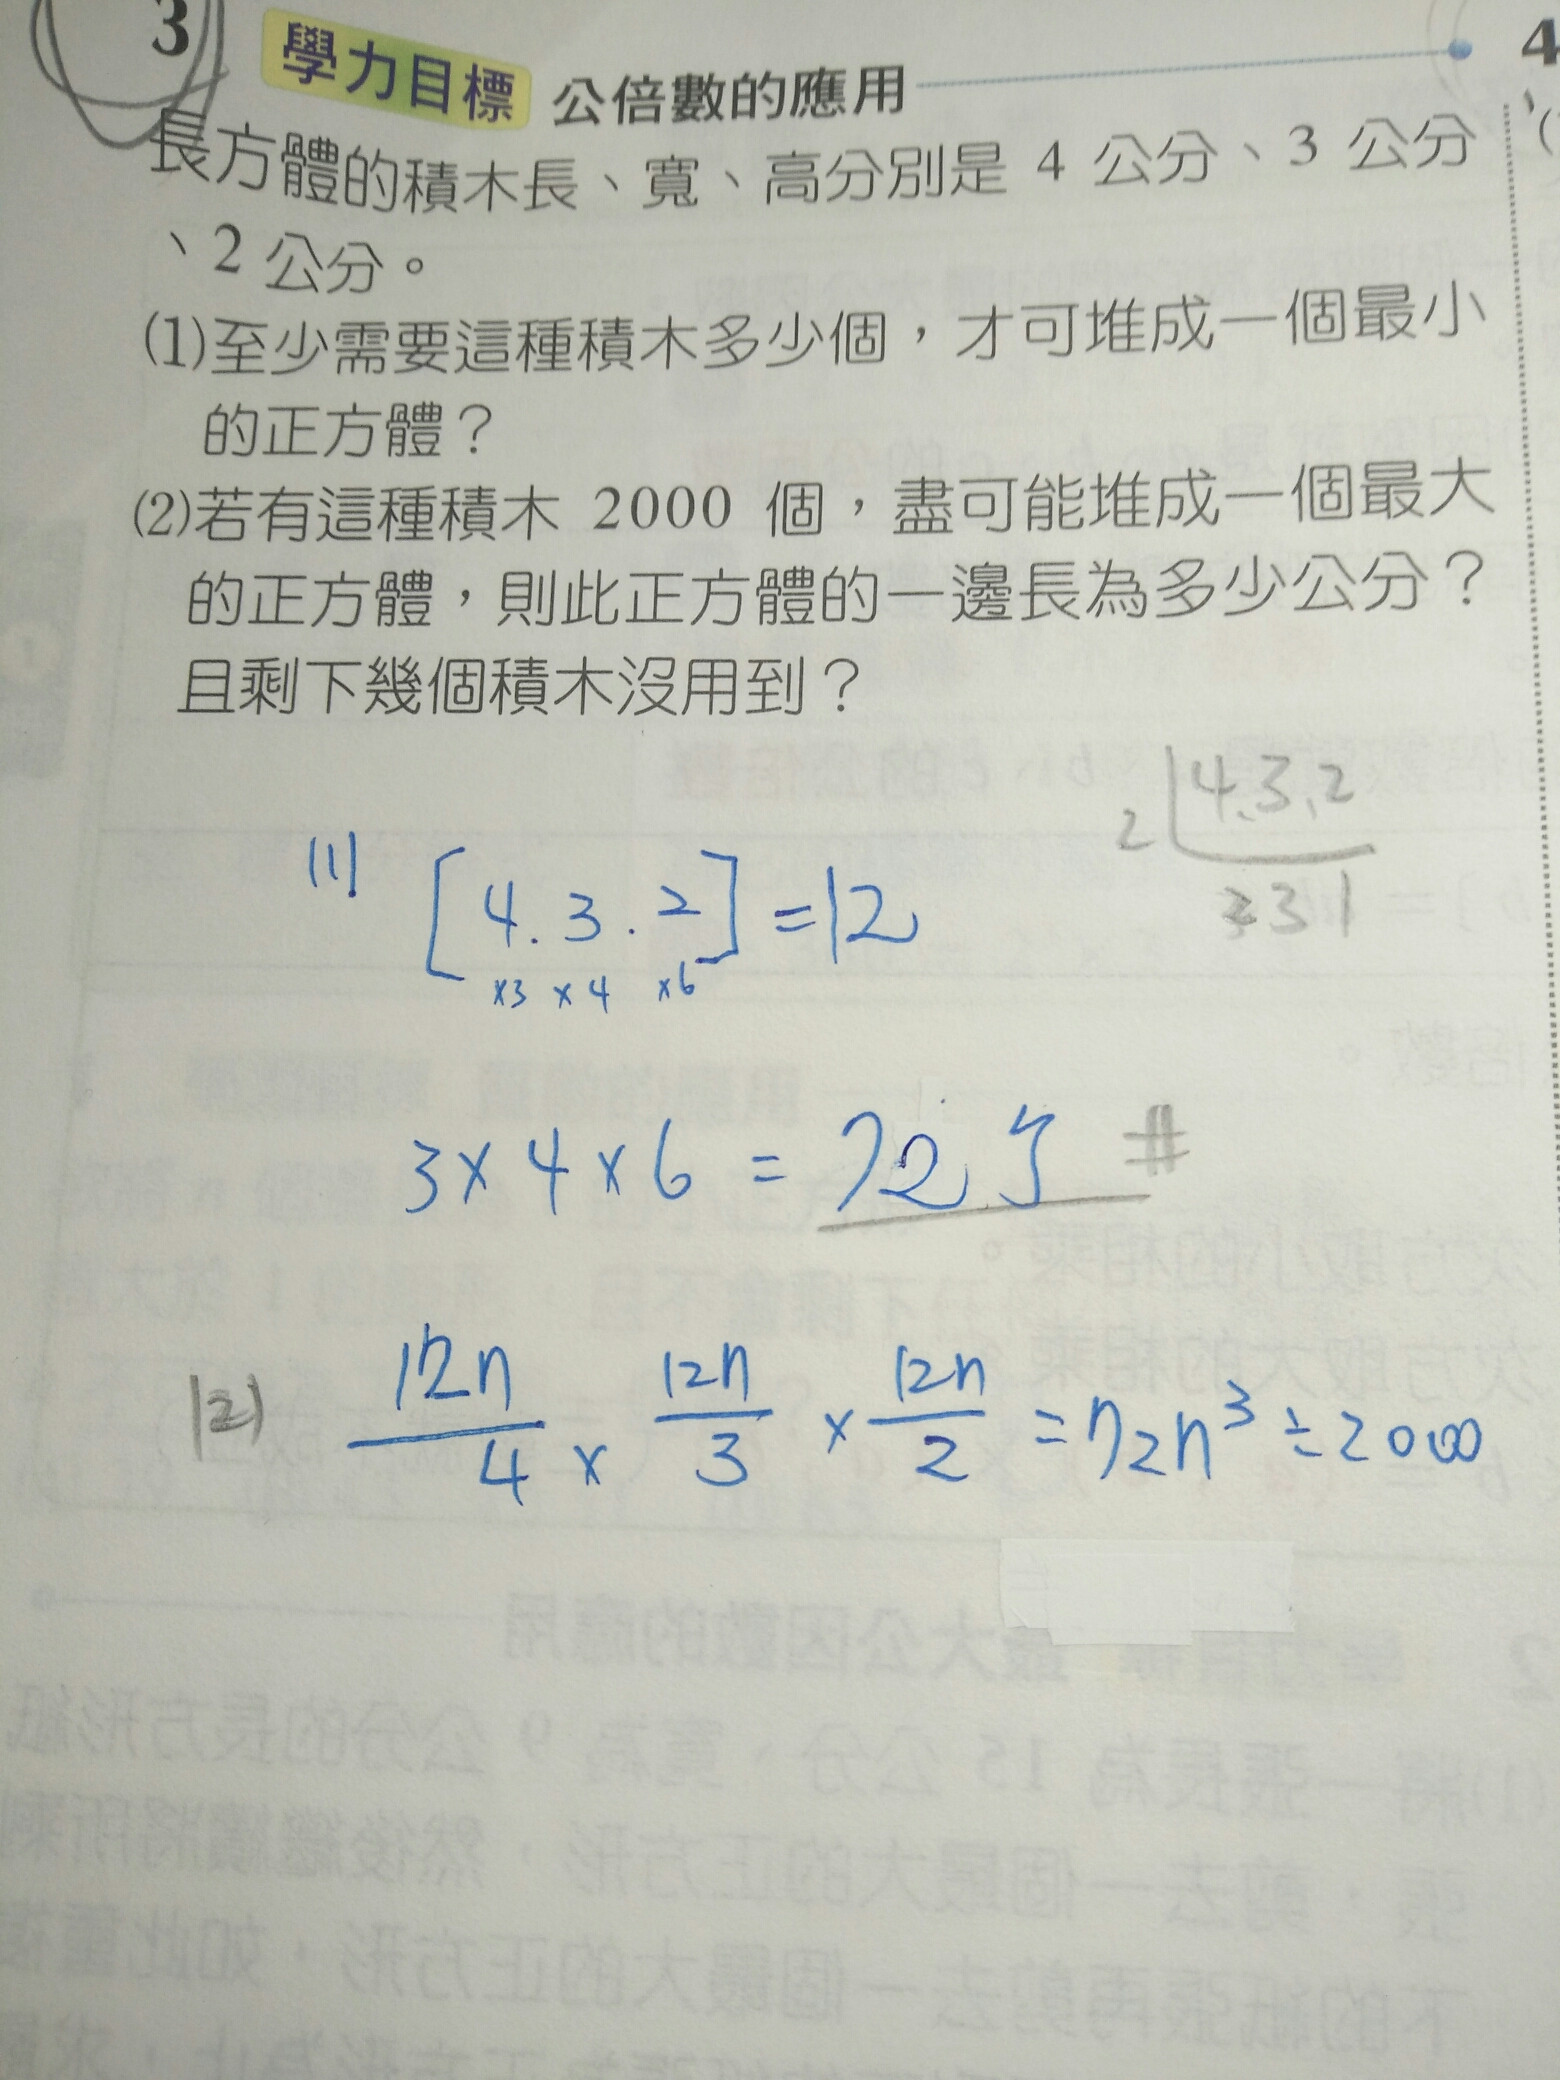 3
學力目標 公倍數的應用
4
長方體的積木長、寬、高分別是 4 公分、3 公分
、2 公分。
(1)至少需要這種積木多少個，才可堆成一個最小
的正方體？
(2)若有這種積木 2000 個，盡可能堆成一個最大
的正方體，則此正方體的一邊長為多少公分？
且剩下幾個積木沒用到？
2 4.3.2
2 3 1
(1) [4.3.2] = 12
×3 ×4 ×6
3 × 4 × 6 = 72 #
(2) 12n/4 × 12n/3 × 12n/2 = 72n³ ÷ 2000